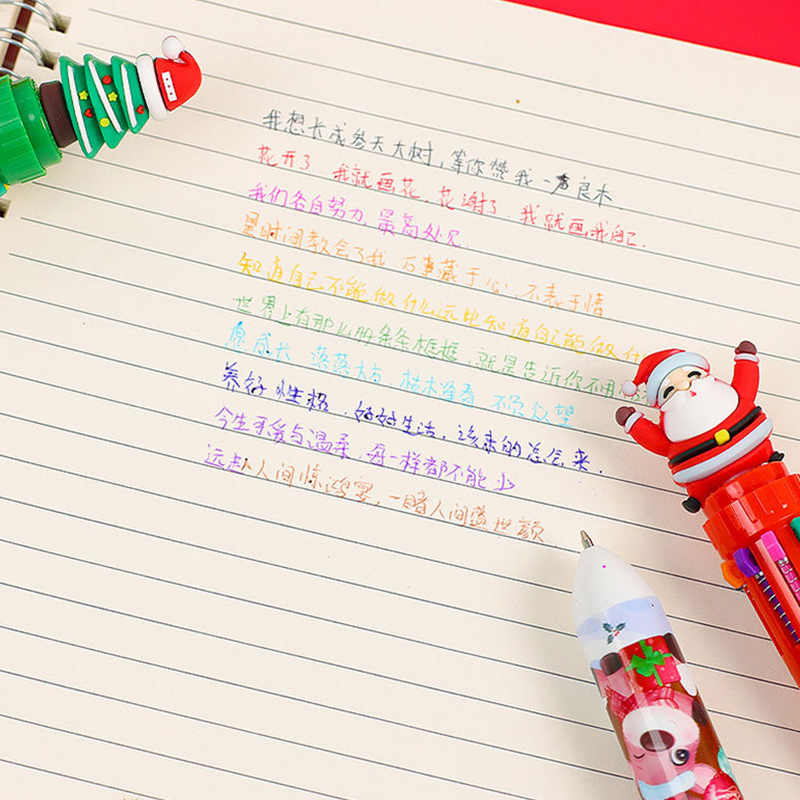 我想长成参天大树，等你赞我一声良木
花开了 我就画花，花谢了，我就画我自己.
我们各自努力，最高处见.
是时间教会了我 万事藏于心，不表于情
知道自己不能做什么远比知道自己能做什
世界上有那么多条条框框，就是告诉你不用
愿成长 落落大方 枯木逢春 不负众望
养好性格，好好生活，该来的总会来.
今生可爱与温柔，每一样都不能少
远赴人间惊鸿宴，一睹人间盛世颜